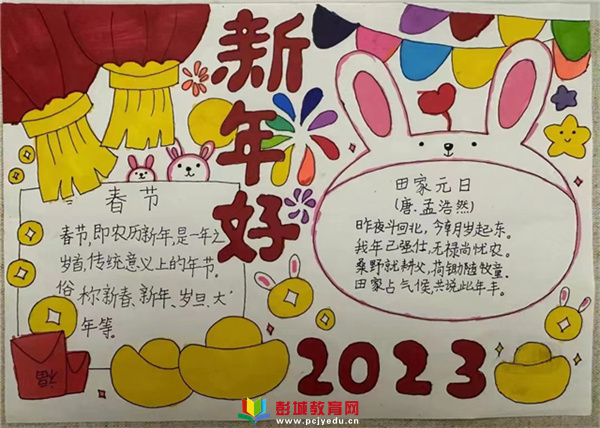 新年好
春节
春节,即农历新年,是一年之
岁首,传统意义上的年节。
俗称新春、新年、岁旦、大
年等。
田家元日
(唐.孟浩然)
昨夜斗回北,今朝岁起东。
我年已强仕,无禄尚忧农。
桑野就耕父,荷锄随牧童。
田家占气候,共说此年丰。
福
2023
彭城教育网
www.pcjyedu.cn